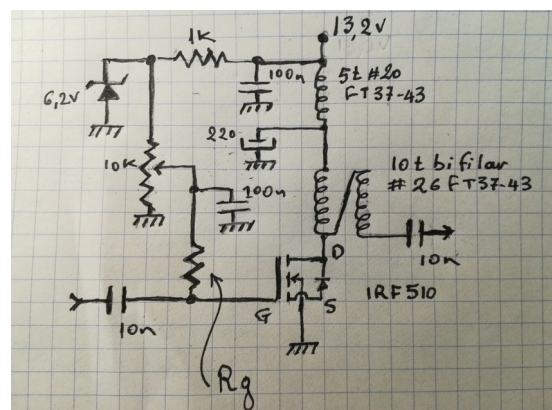 13,2v
1K
100n
5t #20
FT37-43
6,2v
220
10K
100n
10t bifilar
#26 FT37-43
D
10n
IRF510
G
S
10n
Rg